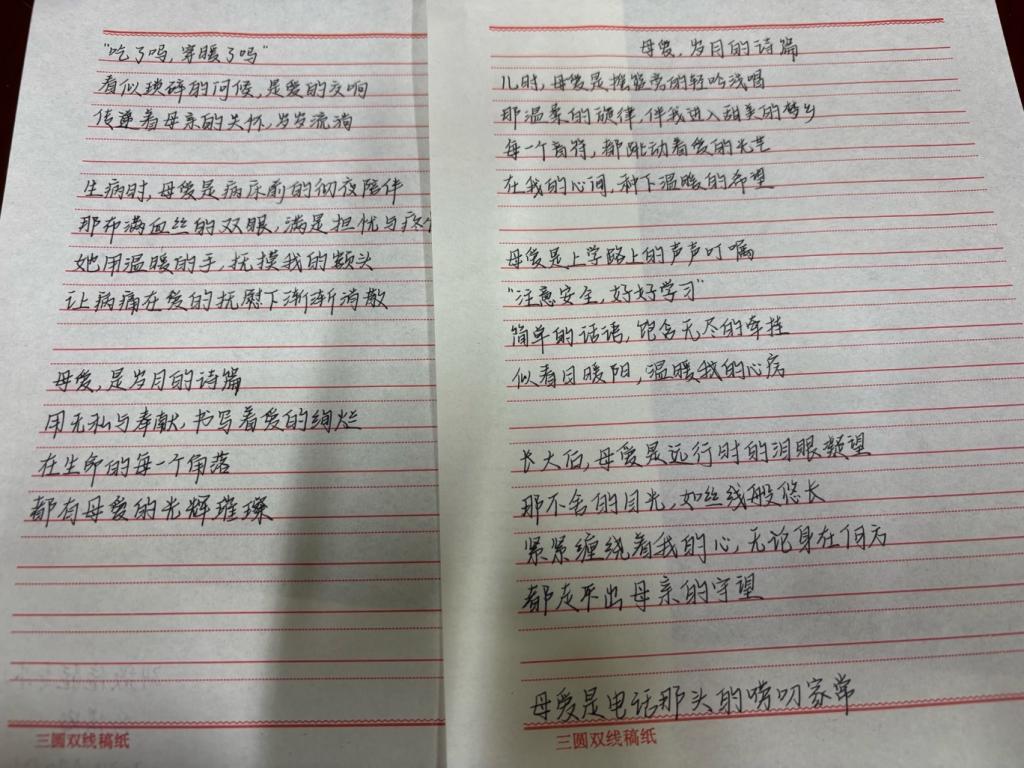 母爱,岁月的诗篇
儿时,母爱是摇篮旁的轻吟浅唱
那温柔的旋律,伴我进入甜美的梦乡
每一个音符,都跳动着爱的光芒
在我的心间,种下温暖的希望
母爱是上学路上的声声叮嘱
"注意安全,好好学习"
简单的话语,饱含无尽的牵挂
似春日暖阳,温暖我的心房
长大后,母爱是远行时的泪眼凝望
那不舍的目光,如丝线般悠长
紧紧缠绕着我的心,无论身在何方
都走不出母亲的守望
母爱是电话那头的唠叨家常
三圆双线稿纸
"吃了吗,穿暖了吗"
看似琐碎的问候,是爱的交响
传递着母亲的关怀,岁岁流淌
生病时,母爱是病床前的彻夜陪伴
那布满血丝的双眼,满是担忧与疼
她用温暖的手,抚摸我的额头
让病痛在爱的抚慰下渐渐消散
母爱,是岁月的诗篇
用无私与奉献,书写着爱的绚烂
在生命的每一个角落
都有母爱的光辉璀璨
三圆双线稿纸